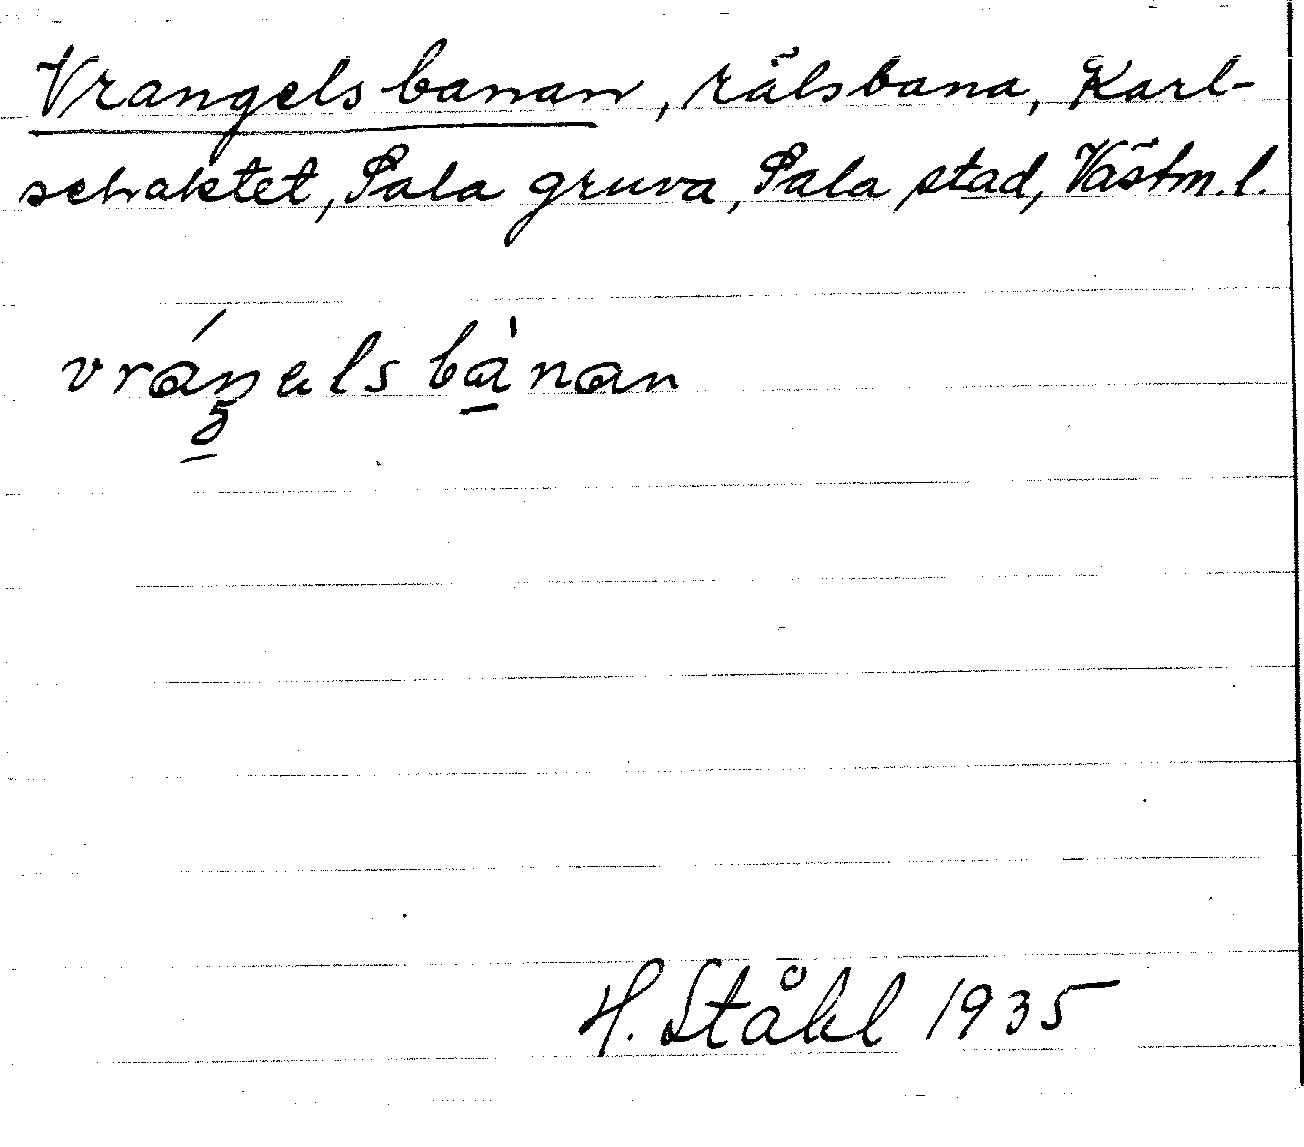 Vrangelsbanan, rälsbana, Karl-
schaktet, Sala gruva, Sala stad, Västm. l.
vráŋelsbànan
H. Ståhl 1935